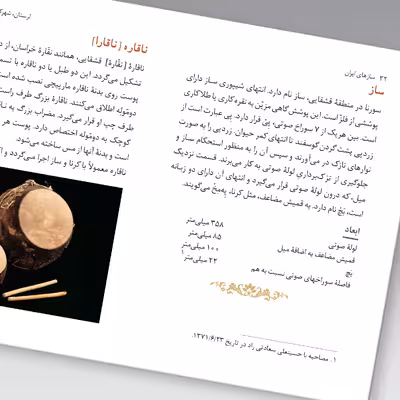 ۳۲ سازهای ایران
ساز
سورنا در منطقهٔ قشقایی، ساز نام دارد. انتهای شیپوری ساز دارای
پوششی از فلز است. این پوشش گاهی مزیّن به نقره‌کاری یا طلاکاری
است. بین هر یک از ۷ سوراخ صوتی، پیْ قرار دارد. پی عبارت است از
زردپی پشت گردن گوسفند تا انتهای کمر حیوان. زردپی را به صورت
نوارهای نازک در می‌آورند و سپس آن را به منظور استحکام ساز و
جلوگیری از ترک‌برداری لولهٔ صوتی به کار می‌برند. قسمت نزدیک
میل، که درون لولهٔ صوتی قرار می‌گیرد و انتهای آن دارای دو زبانه
است، پُچ نام دارد. به قمیش مضاعف، مثل کرنا، پهمچْ می‌گویند.
ابعاد
لولهٔ صوتی ۳۵۸ میلی‌متر
قمیش مضاعف به اضافهٔ میل ۸۵ میلی‌متر
پچ ۱۰۰ میلی‌متر
فاصلهٔ سوراخهای صوتی نسبت به هم ۲۲ میلی‌متر
۱. مصاحبه با حسینعلی سعادتی راد در تاریخ ۱۳۷۱/۶/۲۳.
لرستان، شهرک
ناقاره [ناقارا]
ناقارهٔ [نقّارهٔ] قشقایی، همانند نقّارهٔ خراسان، از د
تشکیل می‌گردد. این دو طبل یا دو ناقاره با تسمه
پوست روی بدنهٔ ناقاره مارپیچی نصب شده است
دومّوله اطلاق می‌کنند. ناقارهٔ بزرگ طرف راست
طرف چپ او قرار می‌گیرد. مضراب بزرگ به ناقا
کوچک به دومّوله اختصاص دارد. پوست هر
است و بدنهٔ آنها از مس ساخته می‌شود.
ناقاره معمولاً با کرنا و ساز اجرا می‌گردد و